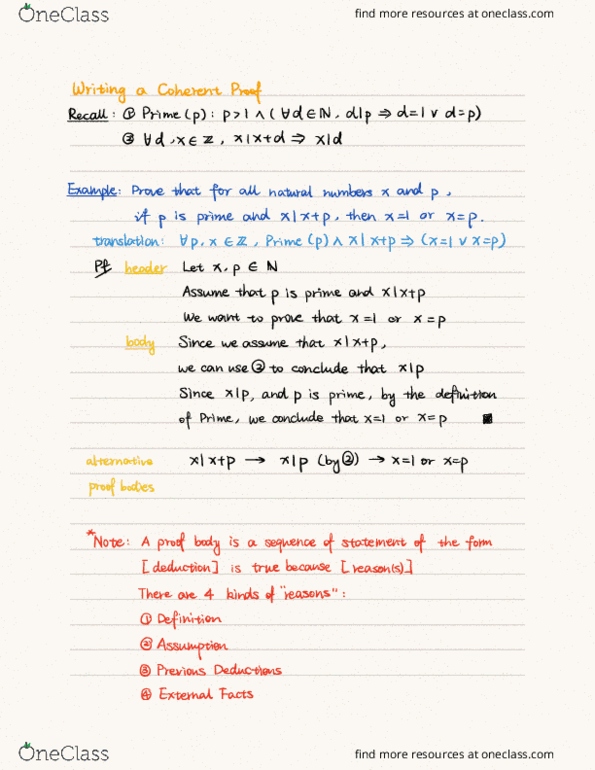 OneClass
find more resources at oneclass.com
Writing a Coherent Proof
Recall: ① Prime(p): p>1 ∧ (∀d∈ℕ, d|p ⇒ d=1 ∨ d=p)
② ∀d,x∈ℤ, x|x+d ⇒ x|d
Example: Prove that for all natural numbers x and p,
if p is prime and x|x+p, then x=1 or x=p.
translation: ∀p,x∈ℤ, Prime(p) ∧ x|x+p ⇒ (x=1 ∨ x=p)
Pf header Let x,p ∈ ℕ
Assume that p is prime and x|x+p
We want to prove that x=1 or x=p
body Since we assume that x|x+p,
we can use ② to conclude that x|p
Since x|p, and p is prime, by the definition
of Prime, we conclude that x=1 or x=p ■
alternative x|x+p → x|p (by②) → x=1 or x=p
proof bodies
*Note: A proof body is a sequence of statement of the form
[deduction] is true because [reason(s)]
There are 4 kinds of "reasons":
① Definition
② Assumption
③ Previous Deductions
④ External Facts
OneClass
find more resources at oneclass.com